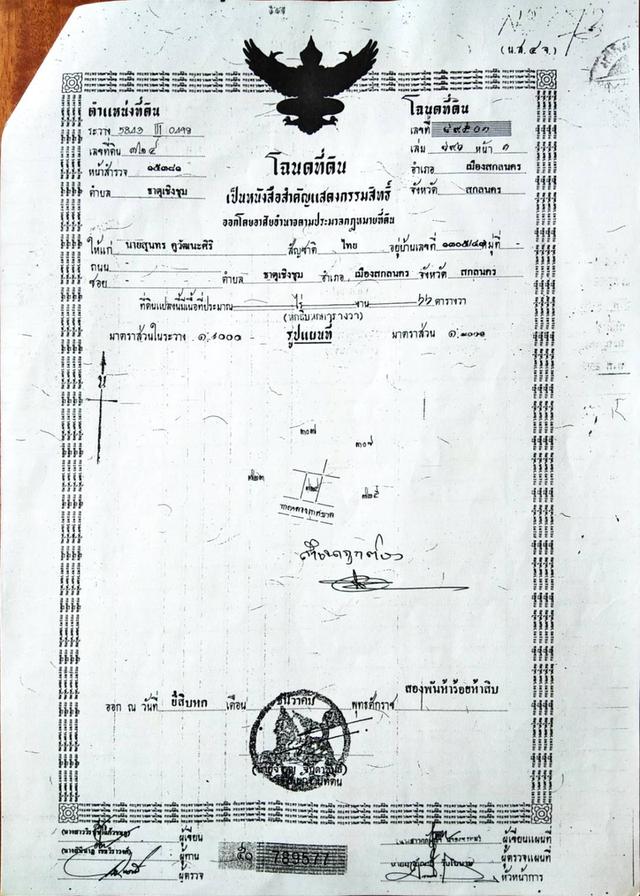 (น.ส.๔ จ.)
ตำแหน่งที่ดิน
ระวาง 5843 III 0498
เลขที่ดิน ๗๒๔
หน้าสำรวจ ๑๕๓๘๑
ตำบล ธาตุเชิงชุม
โฉนดที่ดิน
เลขที่ ๔๙๕๐๓
เล่ม ๔๙๖ หน้า ๓
อำเภอ เมืองสกลนคร
จังหวัด สกลนคร
โฉนดที่ดิน
เป็นหนังสือสำคัญแสดงกรรมสิทธิ์
ออกโดยอาศัยอำนาจตามประมวลกฎหมายที่ดิน
ให้แก่ นายสุนทร คูวัฒนะศิริ สัญชาติ ไทย อยู่บ้านเลขที่ ๑๓๐๕/๔๑ หมู่ที่ -
ถนน -
ซอย - ตำบล ธาตุเชิงชุม อำเภอ เมืองสกลนคร จังหวัด สกลนคร
ที่ดินแปลงนี้มีเนื้อที่ประมาณ ไร่ งาน ๖๖ ตารางวา
(หกสิบหกตารางวา)
มาตราส่วนในระวาง ๑:๔๐๐๐ รูปแผนที่ มาตราส่วน ๑:๒๐๐๐
น
๓๐๗
๓๐๘
๗๒๓
๗๒๔
๗๒๕
สำเนาถูกต้อง
ออก ณ วันที่ ยี่สิบหก เดือน ธันวาคม พุทธศักราช สองพันห้าร้อยห้าสิบ
ผู้เขียน
ผู้ทาน
ผู้ตรวจ
๕๐ 789577
ผู้เขียนแผนที่
ผู้ตรวจแผนที่
หัวหน้าการ